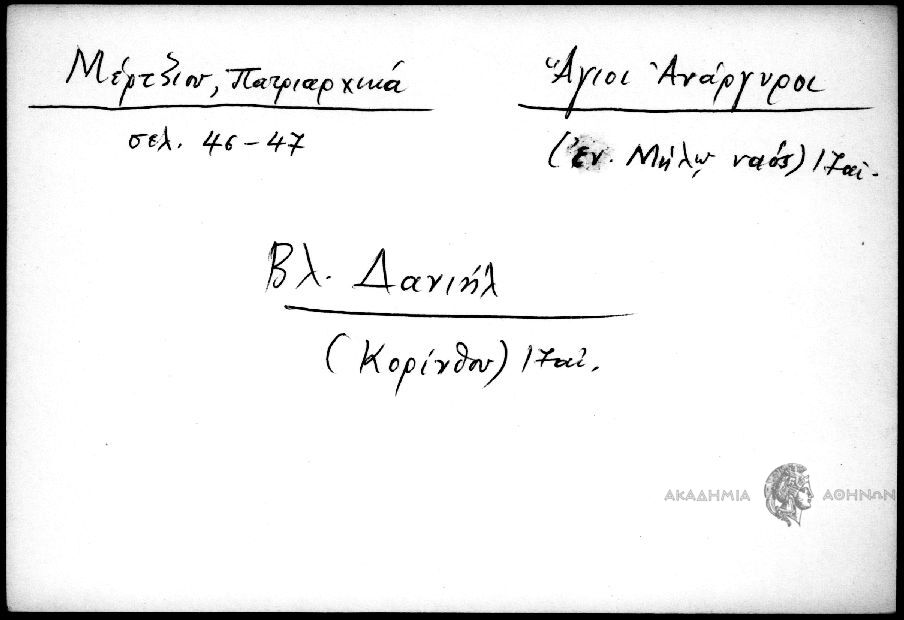 Μέρτζιου, Πατριαρχικά
σελ. 46-47
Ἅγιοι Ἀνάργυροι
(Ἐν. Μήλῳ ναός) 17 αἰ.
Βλ. Δανιήλ
(Κορίνθου) 17 αἰ.
ΑΚΑΔΗΜΙΑ ΑΘΗΝΩΝ